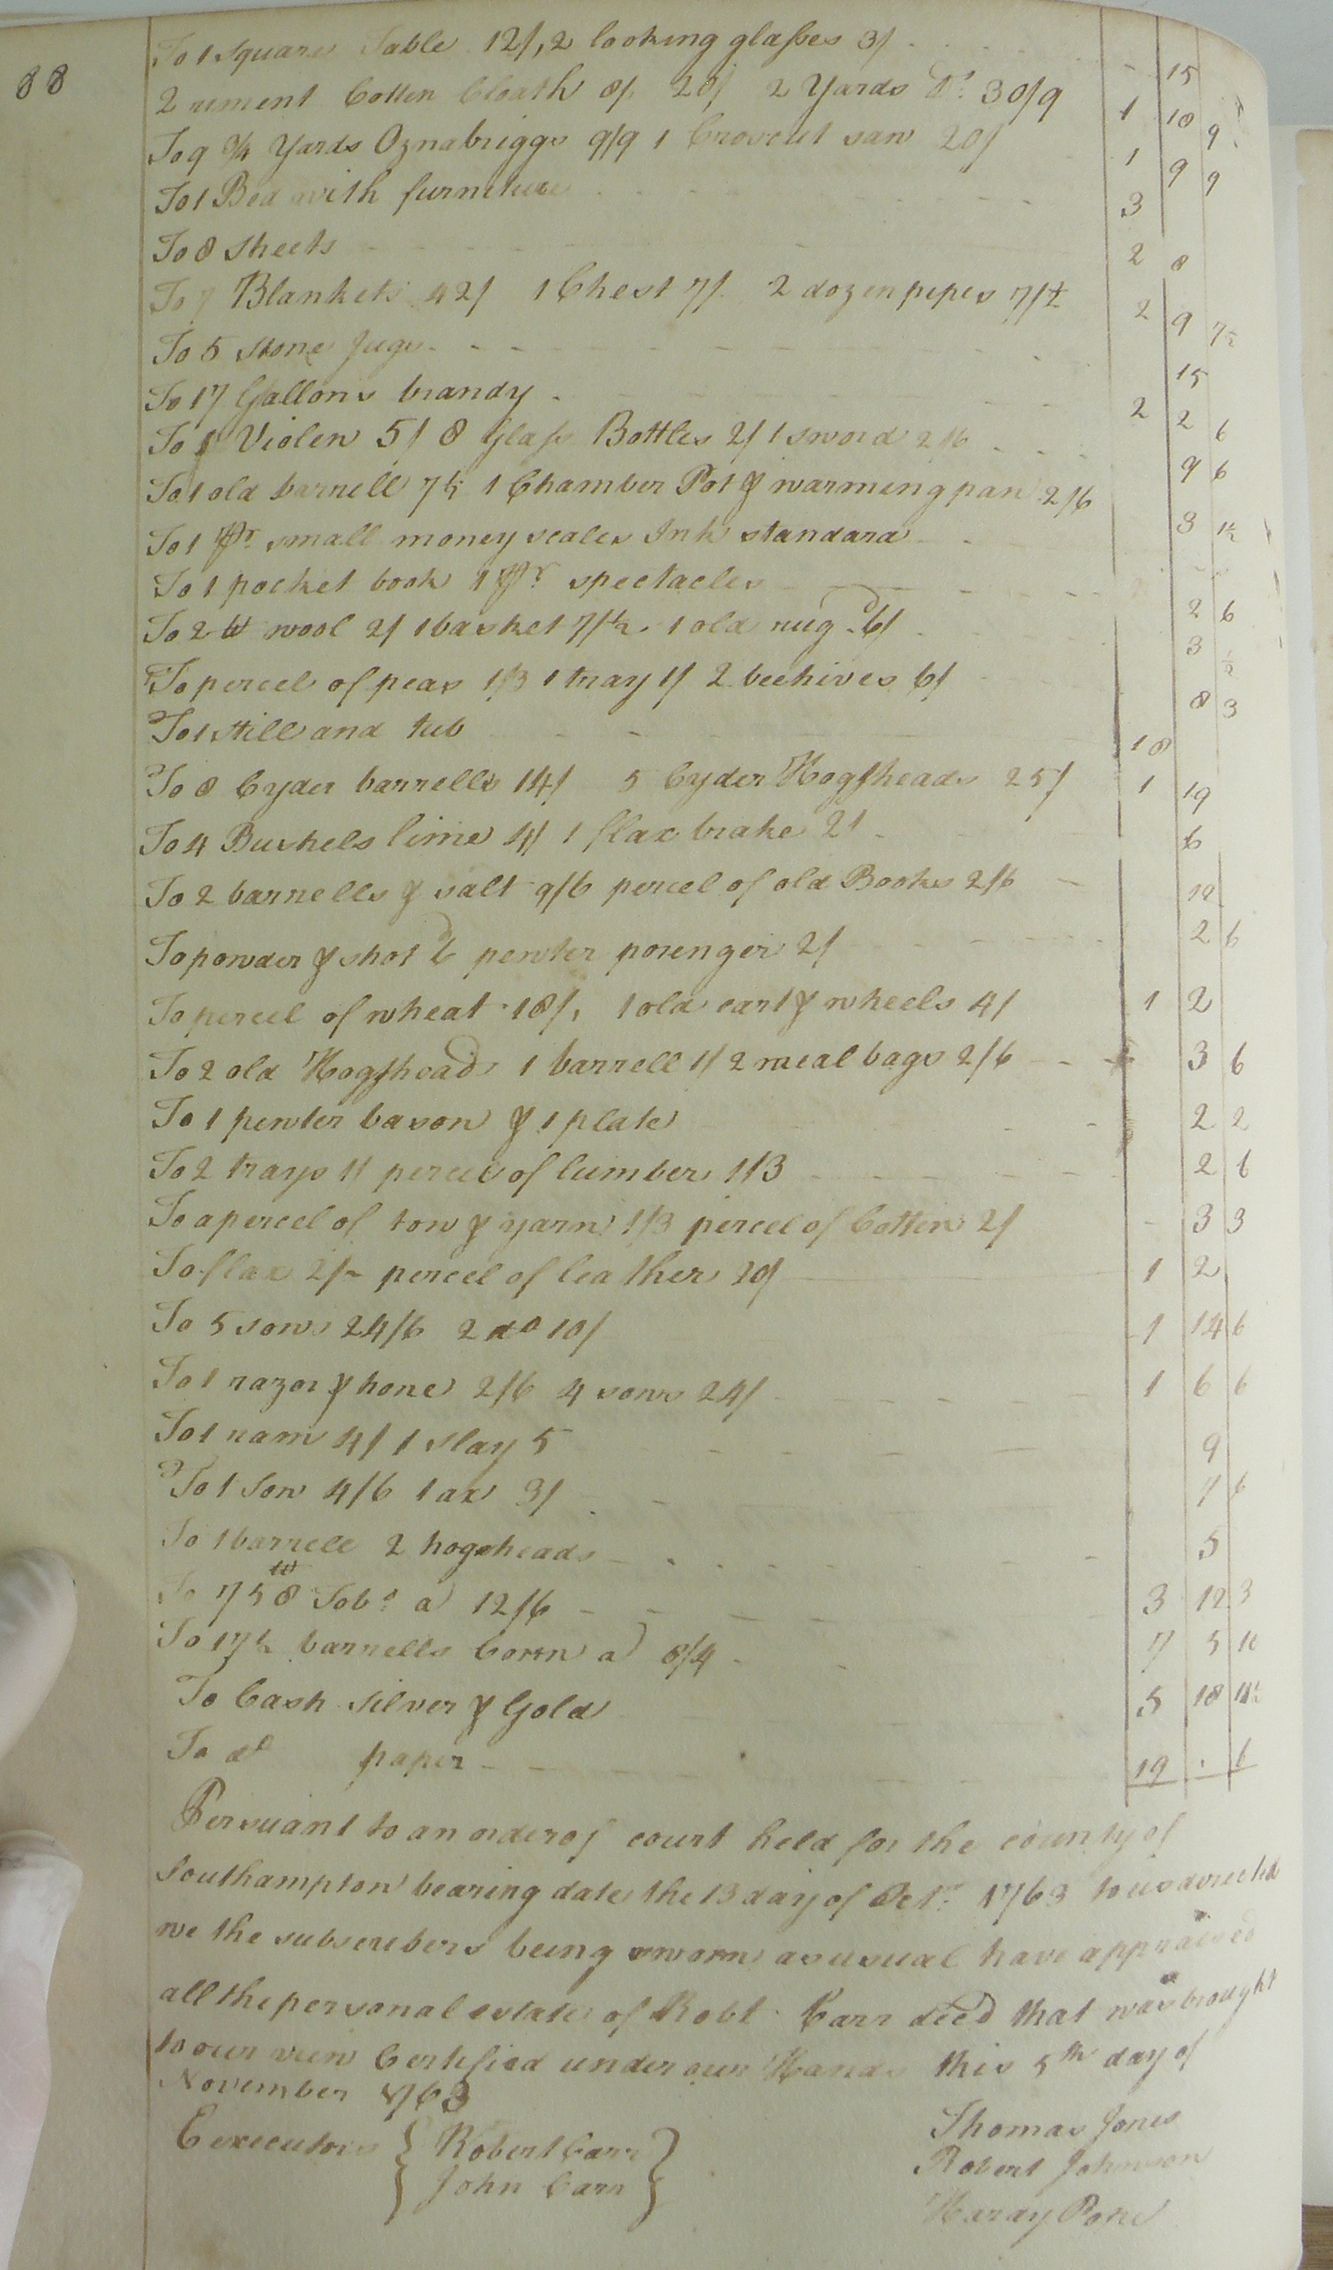 88
To 1 Square Table 12/, 2 looking glasses 3/ - 15
2 Cotten Cloath 20/ 2 Yards Do. 30/9 1 10 9
To 9 3/4 Yards Oznabriggs 9/9 1 Croscut saw 20/ 1 9 9
To 1 Bed with furneture 3
To 8 Sheets 2 8
To 7 Blankets 42/ 1 Chest 7/ 2 dozen pipes 7/½ 2 9 7½
To 5 Stone Jugs 15
To 17 Gallons brandy 2 2 6
To 1 Violen 5/ 8 Glass Bottles 2/ 1 sword 2/6 9 6
To 1 old barrell 7½ 1 Chamber Pot & warming pan 2/6 3 1½
To 1 pr. small money scales Ink standard
To 1 pocket book 1 pr spectacles 2 6
To 2 lb wool 2/ 1 basket 7/½ 1 old rug 6/ 3 ½
To percel of peas 1/3 1 tray 1/ 2 beehives 6/ 8 3
To 1 still and tub 18
To 8 Cyder barrells 14/ 5 Cyder Hogsheads 25/ 1 19
To 4 Bushels lime 4/ 1 flax brake 2/ 6
To 2 barnells & salt 9/6 percel of old Books 2/6 12
To powder & shot 6 pewter porenger 2/ 2 6
To percel of wheat 18/, 1 old cart & wheels 4/ 1 2
To 2 old Hogsheads 1 barrell 1/ 2 meal bags 2/6 3 6
To 1 pewter bason & 1 plate 2 2
To 2 trays 1/ percel of lumber 1/3 2 6
To a percel of tow & yarn 1/3 percel of Cotten 2/ - 3 3
To flax 2/- percel of leather 20/ 1 2
To 5 sows 24/6 2 do 10/ 1 14 6
To 1 razor & hone 2/6 4 sows 24/ 1 6 6
To 1 ram 4/ 1 slay 5 9
To 1 Sow 4/6 1 ax 3/ 7 6
To 1 barrell 2 hogsheads 5
To 758 lb Tobo. a 12/6 3 12 3
To 17½ barrells Corn a 8/4 7 5 10
To Cash Silver & Gold 5 18 11½
To do paper 19 . 6
Persuant to an order of court held for the county of
Southampton bearing date the 13 day of Octr. 1763 to us directed
we the subscribers being sworn as usual have appraised
all the personal estate of Robt Carr decd that was brought
to our view Certified under our Hands this 5th day of
November 1763
Executors { Robert Carr } Thomas Jones
{ John Carr } Robert Johnson
Haray Pore